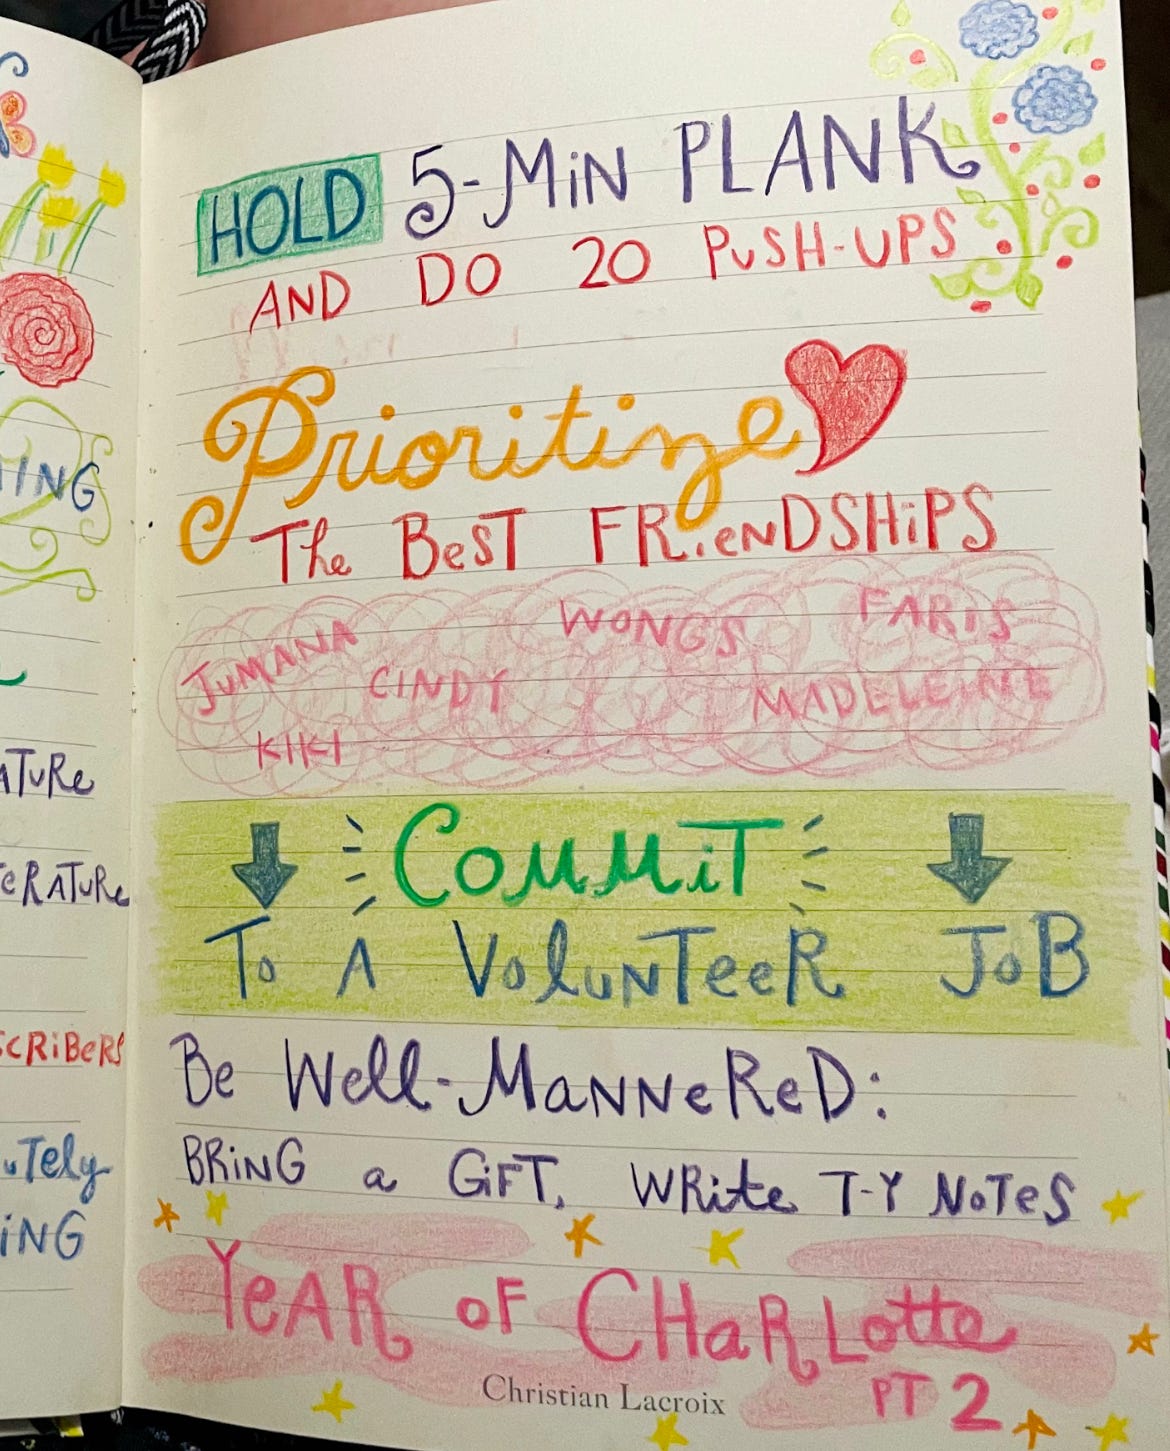 HOLD 5-MiN PLANK
AND DO 20 PuSH-UPS
Prioritize
The BeST FRienDSHiPS
WONGS FARIS
JuMANA CINDY MADELEINE
KIKI
CoMMiT
To A VolunTeeR JoB
Be Well-MaNNeReD:
BRiNG a GiFT, WRite T-Y NoTeS
YeAR oF CHaRLotte
PT 2
Christian Lacroix
ING
ATuRe
eRATuRe
SCRiBeRS
uTely
iNG